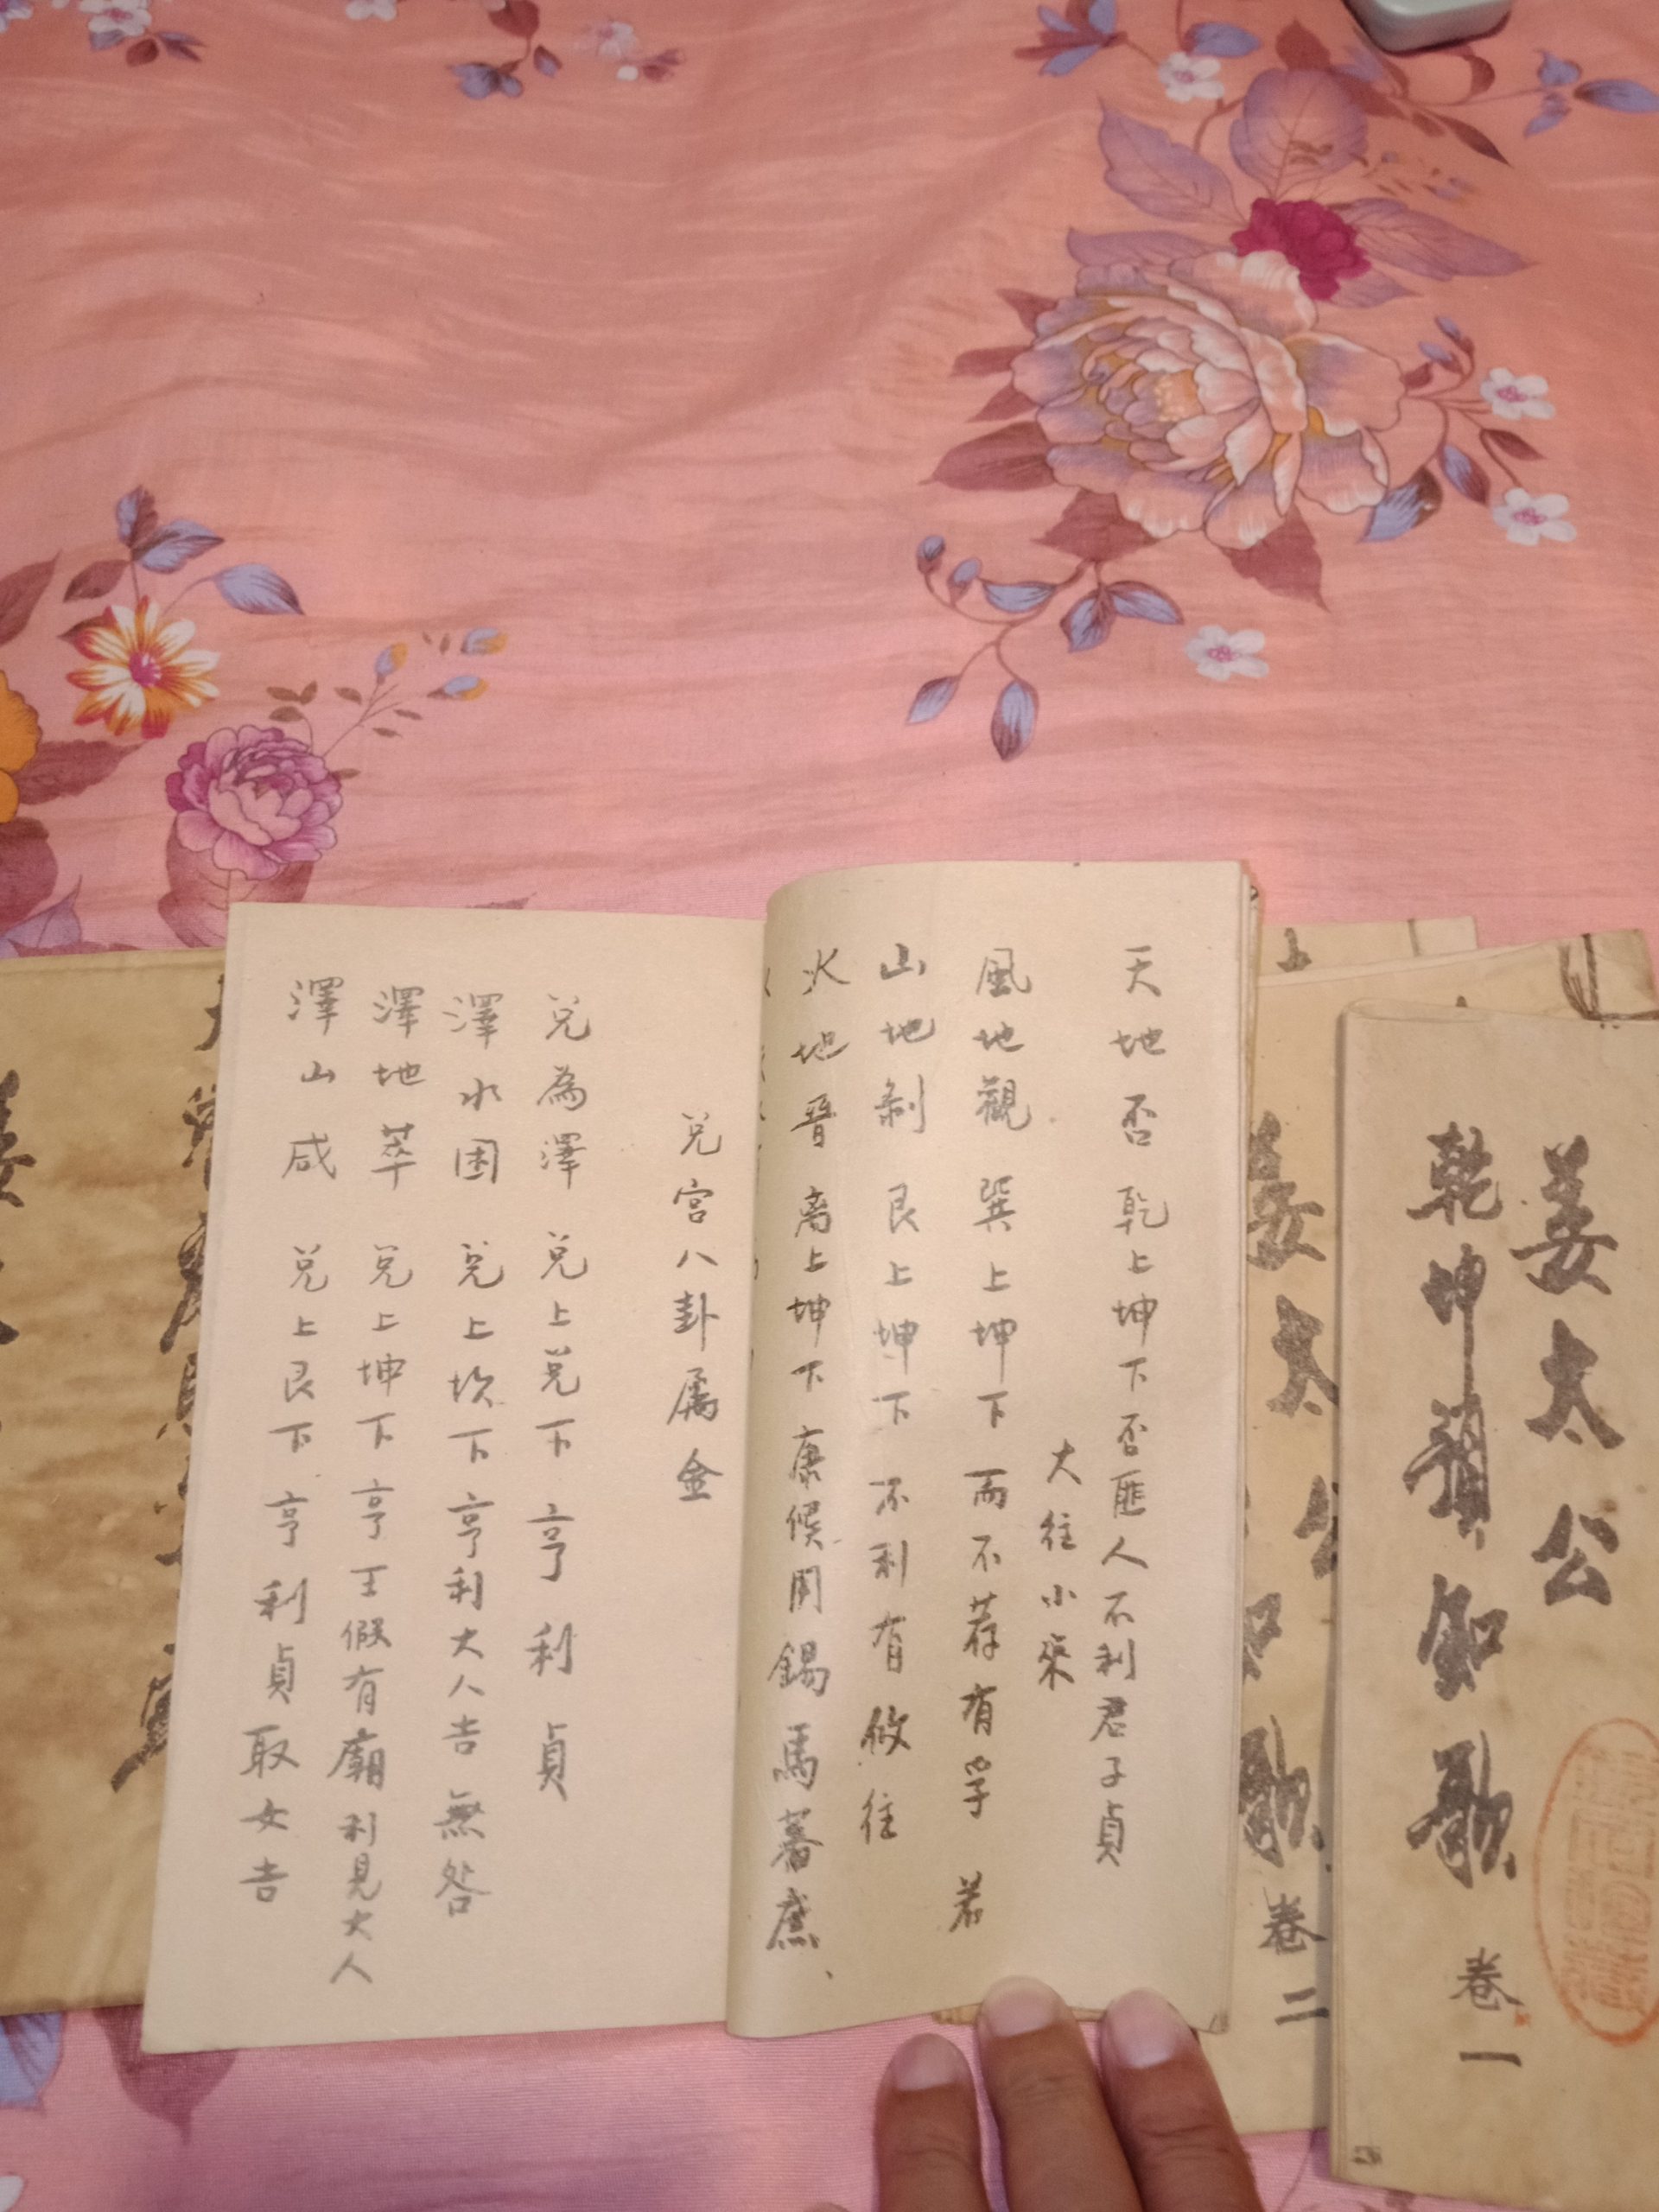 姜太公
乾坤韻知歌
卷一
姜太公
知歌
卷二
天地否 乾上坤下 否匪人不利君子貞
大往小來
風地觀 巽上坤下 而不荐有孚 若
山地剝 艮上坤下 不利有攸往
火地晉 离上坤下 康候用錫馬蕃庶、
兌宮八卦屬金
兌為澤 兌上兌下 亨利貞
澤水困 兌上坎下 亨利大人吉無咎
澤地萃 兌上坤下 亨王假有廟利見大人
澤山咸 兌上艮下 亨利貞取女吉